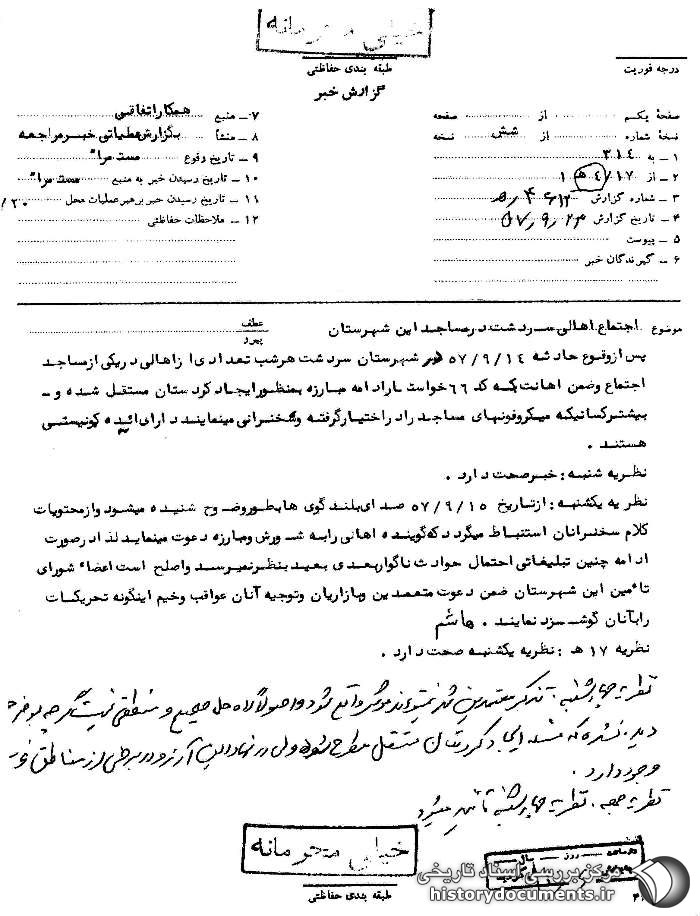 خیلی محرمانه
طبقه بندی حفاظتی
گزارش خبر
درجه فوریت
صفحهٔ یکم ــ از ــ صفحه
نسخهٔ شماره ــ از شش نسخه
۱ ــ به ۳۱٤
۲ ــ از ۱۷/٤ ه ۱
۳ ــ شماره گزارش
۴ ــ تاریخ گزارش ۵۷٫۹٫۲۳
۵ ــ پیوست
۶ ــ گیرندگان خبر
۷ ــ منبع همکار اتفاقی
۸ ــ منشأ بگزارش عملیاتی خبر مراجعه
۹ ــ تاریخ وقوع مستمرا"
۱۰ ــ تاریخ رسیدن خبر به منبع مستمرا"
۱۱ ــ تاریخ رسیدن خبر برهبر عملیات محل
۱۲ ــ ملاحظات حفاظتی
موضوع اجتماع اهالی سردشت در مساجد این شهرستان
عطف
پیرو
پس از وقوع حادثه ۵۷/۹/۱٤ در شهرستان سردشت هر شب تعدادی از اهالی در یکی از مساجد
اجتماع و ضمن اهانت به کد ۶۶ خواستار ادامه مبارزه بمنظور ایجاد کردستان مستقل شده و ـ
بیشتر کسانیکه میکروفونهای مساجد را در اختیار گرفته و سخنرانی مینمایند دارای ایده کمونیستی
هستند .
نظریه شنبه : خبر صحت دارد .
نظریه یکشنبه : از تاریخ ۵۷/۹/۱۵ صدای بلندگوی ها بطور وضوح شنیده میشود و از محتویات
کلام سخنرانان استنباط میگردد که گوینده اهالی را به شورش و مبارزه دعوت مینماید لذا در صورت
ادامه چنین تبلیغاتی احتمال حوادث ناگوار بعدی بعید بنظر نمیرسد و اصلح است اعضاء شورای
تاءمین این شهرستان ضمن دعوت متعمدین و بازاریان و توجیه آنان عواقب وخیم اینگونه تحریکات
را بآنان گوشزد نمایند . هاشم
نظریه ۱۷ ه : نظریه یکشنبه صحت دارد .
نظریه چهارشنبه . تذکر بمعتمدین شهر نمیتواند موثر واقع شود و اصولا راه حل صحیح و منطقی نیست گرچه
دیده نشده که مسئله ایجاد کردستان مستقل مطرح شود ولی در نهاد این آرزو در برخی از مناطق
وجود دارد .
نظریه جمعه . نظریه چهارشنبه تائید میشود
خیلی محرمانه
طبقه بندی حفاظتی
مرکز بررسی اسناد تاریخی
historydocuments.ir